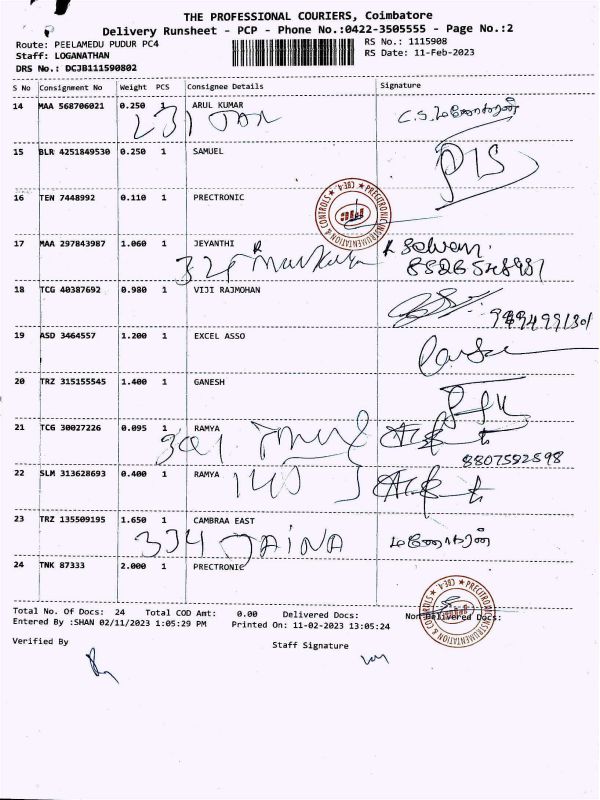 THE PROFESSIONAL COURIERS, Coimbatore
Delivery Runsheet - PCP - Phone No.:0422-3505555 - Page No.:2
Route: PEELAMEDU PUDUR PC4
RS No.: 1115908
Staff: LOGANATHAN
RS Date: 11-Feb-2023
DRS No.: DCJB111590802
S No Consignment No Weight PCS Consignee Details Signature
14 MAA 568706021 0.250 1 ARUL KUMAR
231
C.S.மனோகரன்
15 BLR 4251849530 0.250 1 SAMUEL
16 TEN 7448992 0.110 1 PRECTRONIC
17 MAA 297843987 1.060 1 JEYANTHI
321
Selvam
18 TCG 40387692 0.980 1 VIJI RAJMOHAN
9894991301
19 ASD 3464557 1.200 1 EXCEL ASSO
20 TRZ 315155545 1.400 1 GANESH
21 TCG 30027226 0.095 1 RAMYA
301
8807592898
22 SLM 313628693 0.400 1 RAMYA
140
23 TRZ 135509195 1.650 1 CAMBRAA EAST
334 JAINA மனோகரன்
24 TNK 87333 2.000 1 PRECTRONIC
Total No. Of Docs: 24 Total COD Amt: 0.00 Delivered Docs: Non Delivered Docs:
Entered By :SHAN 02/11/2023 1:05:29 PM Printed On: 11-02-2023 13:05:24
Verified By
Staff Signature